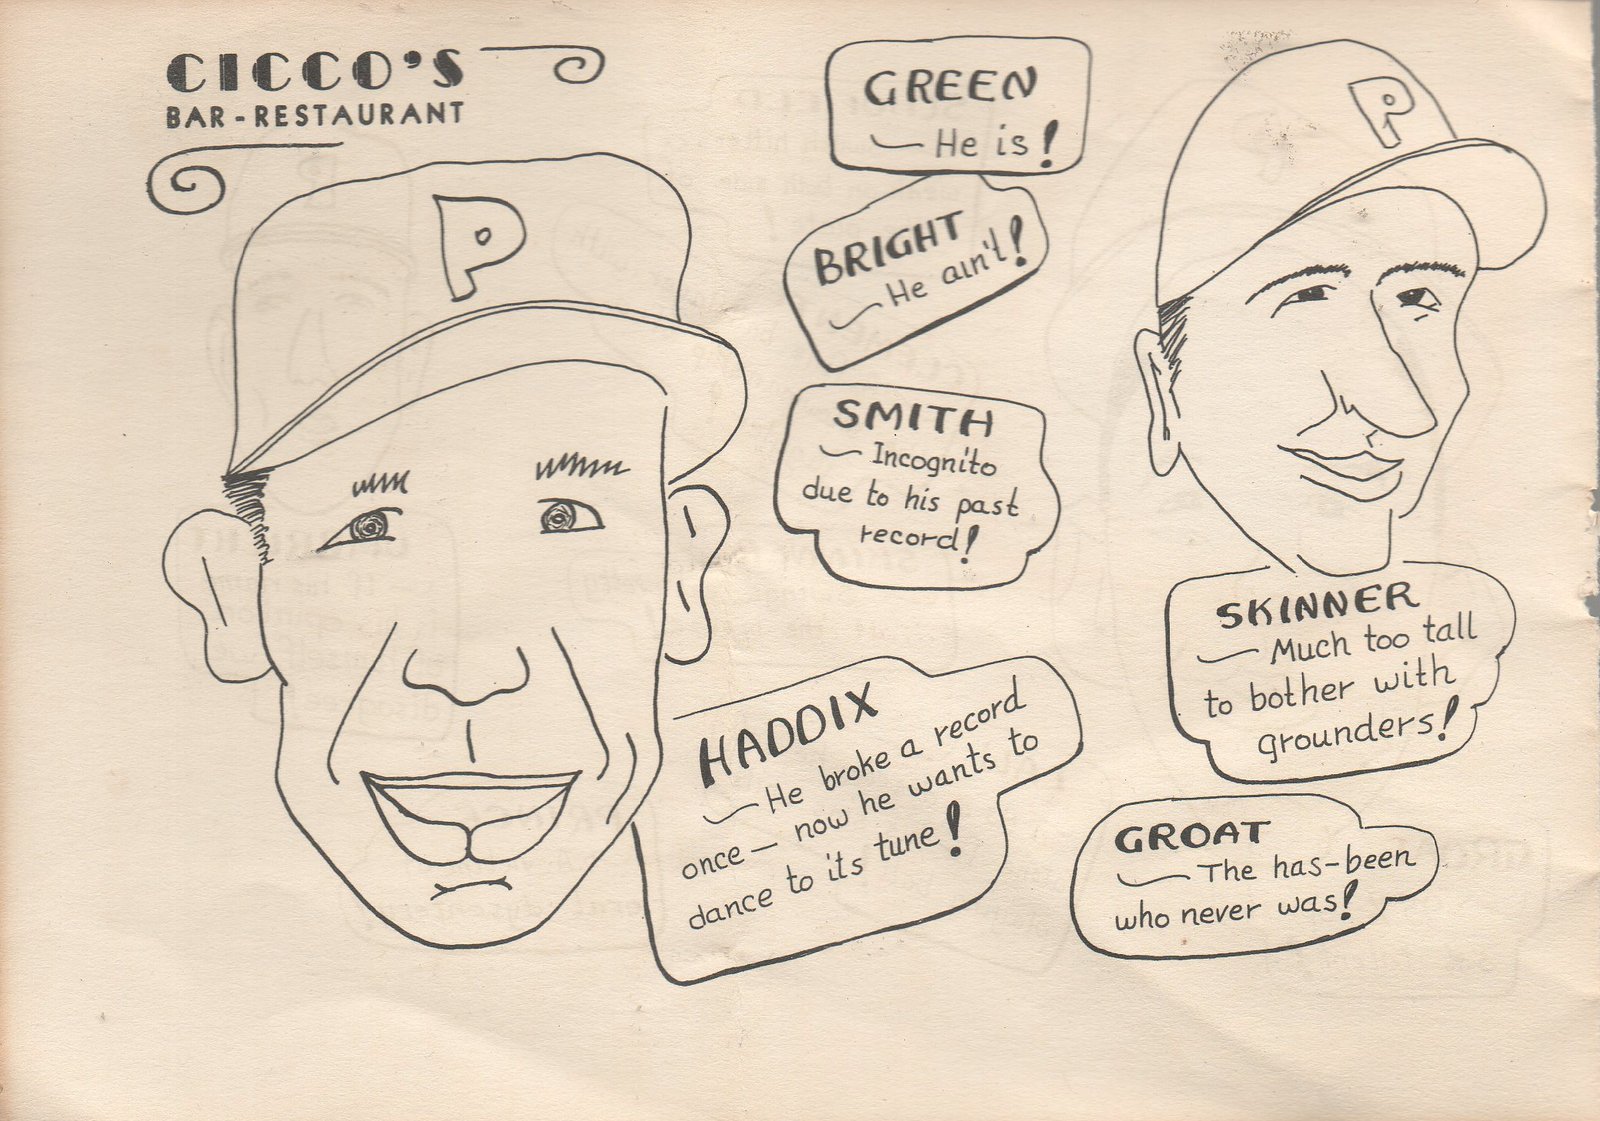 CICCO'S
BAR-RESTAURANT
P
GREEN
— He is!
BRIGHT
— He ain't!
SMITH
— Incognito
due to his past
record!
HADDIX
— He broke a record
once — now he wants to
dance to its tune!
P
SKINNER
— Much too tall
to bother with
grounders!
GROAT
— The has-been
who never was!